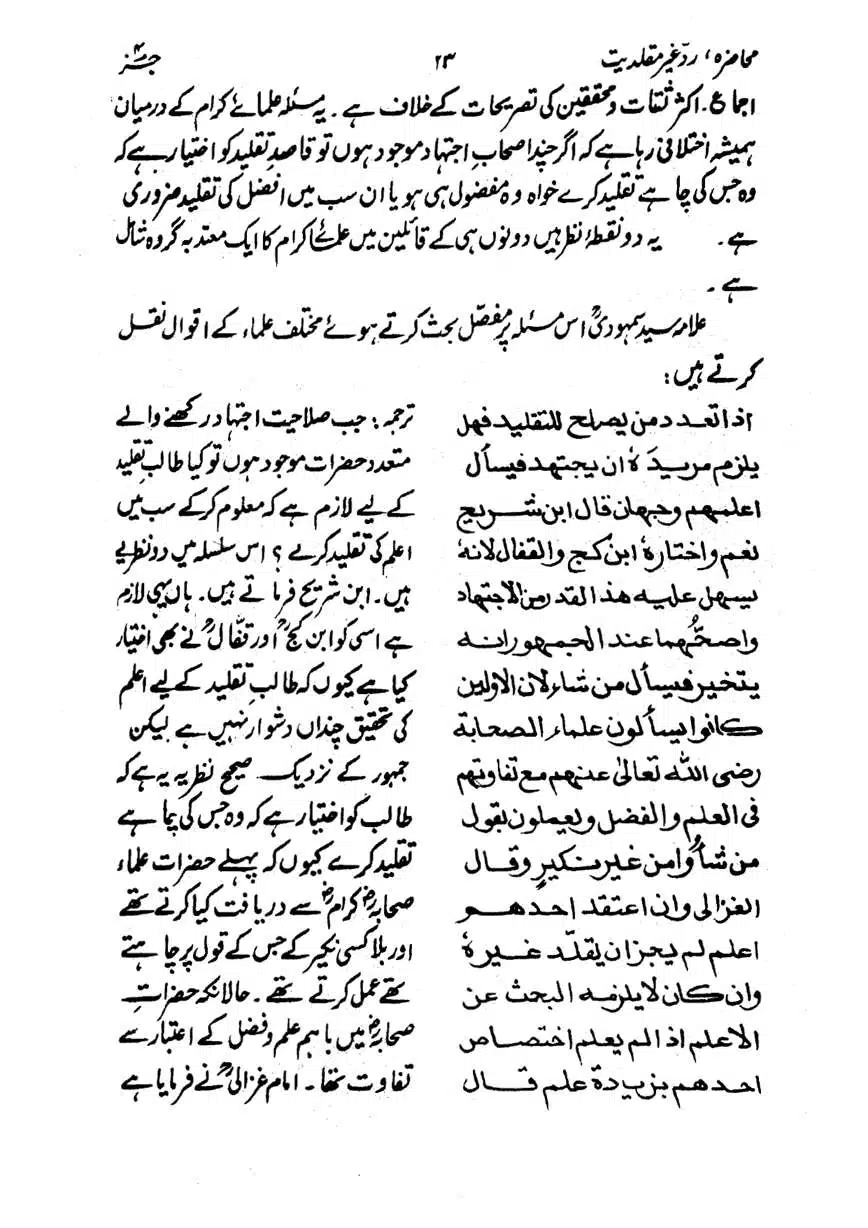 محاضرہ، ردّ غیر مقلدیت ۲۳ جزء ۴
اجماع۔ اکثر ثقات و محققین کی تصریحات کے خلاف ہے۔ یہ مسئلہ علمائے کرام کے درمیان
ہمیشہ اختلافی رہا ہے کہ اگر چند اصحابِ اجتہاد موجود ہوں تو قاصدِ تقلید کو اختیار ہے کہ
وہ جس کی چاہے تقلید کرے خواہ وہ مفضول ہی ہو یا ان سب میں افضل کی تقلید ضروری
ہے۔ یہ دو نقطۂ نظر ہیں دونوں ہی کے قائلین میں علمائے کرام کا ایک معتد بہ گروہ شامل
ہے۔
علامہ سید سمہودیؒ اس مسئلہ پر مفصّل بحث کرتے ہوئے مختلف علماء کے اقوال نقل
کرتے ہیں:
اذا تعدد من يصلح للتقليد فهل
يلزم مريدَهٗ ان يجتهد فيسأل
اعلمهم وجهان قال ابن شريح
نعم واختارهٗ ابن كج والقفال لانهٗ
يسهل عليه هذا القدر من الاجتهاد
واصحُّهما عند الجمهور انه
يتخير فيسأل من شاء لان الاولين
كانوا يسألون علماء الصحابة
رضى الله تعالىٰ عنهم مع تفاوتهم
فى العلم والفضل ويعملون بقول
من شاؤوا من غير نكيرٍ وقال
الغزالى وان اعتقد احدهم
اعلم لم يجز ان يقلّد غيرهٗ
وان كان لا يلزمه البحث عن
الاعلم اذا لم يعلم اختصاص
احدهم بزيادة علم قال
ترجمہ: جب صلاحیت اجتہاد رکھنے والے
متعدد حضرات موجود ہوں تو کیا طالب تقلید
کے لیے لازم ہے کہ معلوم کرکے سب میں
اعلم کی تقلید کرے؟ اس سلسلہ میں دو نظریے
ہیں۔ ابن شریح فرماتے ہیں۔ ہاں یہی لازم
ہے اسی کو ابن کجؒ اور قفالؒ نے بھی اختیار
کیا ہے کیوں کہ طالب تقلید کے لیے اعلم
کی تحقیق چنداں دشوار نہیں ہے لیکن
جمہور کے نزدیک صحیح نظریہ یہ ہے کہ
طالب کو اختیار ہے کہ وہ جس کی چاہے
تقلید کرے کیوں کہ پہلے حضرات علماء
صحابہؓ کرامؓ سے دریافت کیا کرتے تھے
اور بلا کسی نکیر کے جس کے قول پر چاہتے
تھے عمل کرتے تھے۔ حالانکہ حضراتِ
صحابہؓ میں باہم علم و فضل کے اعتبار سے
تفاوت تھا۔ امام غزالیؒ نے فرمایا ہے